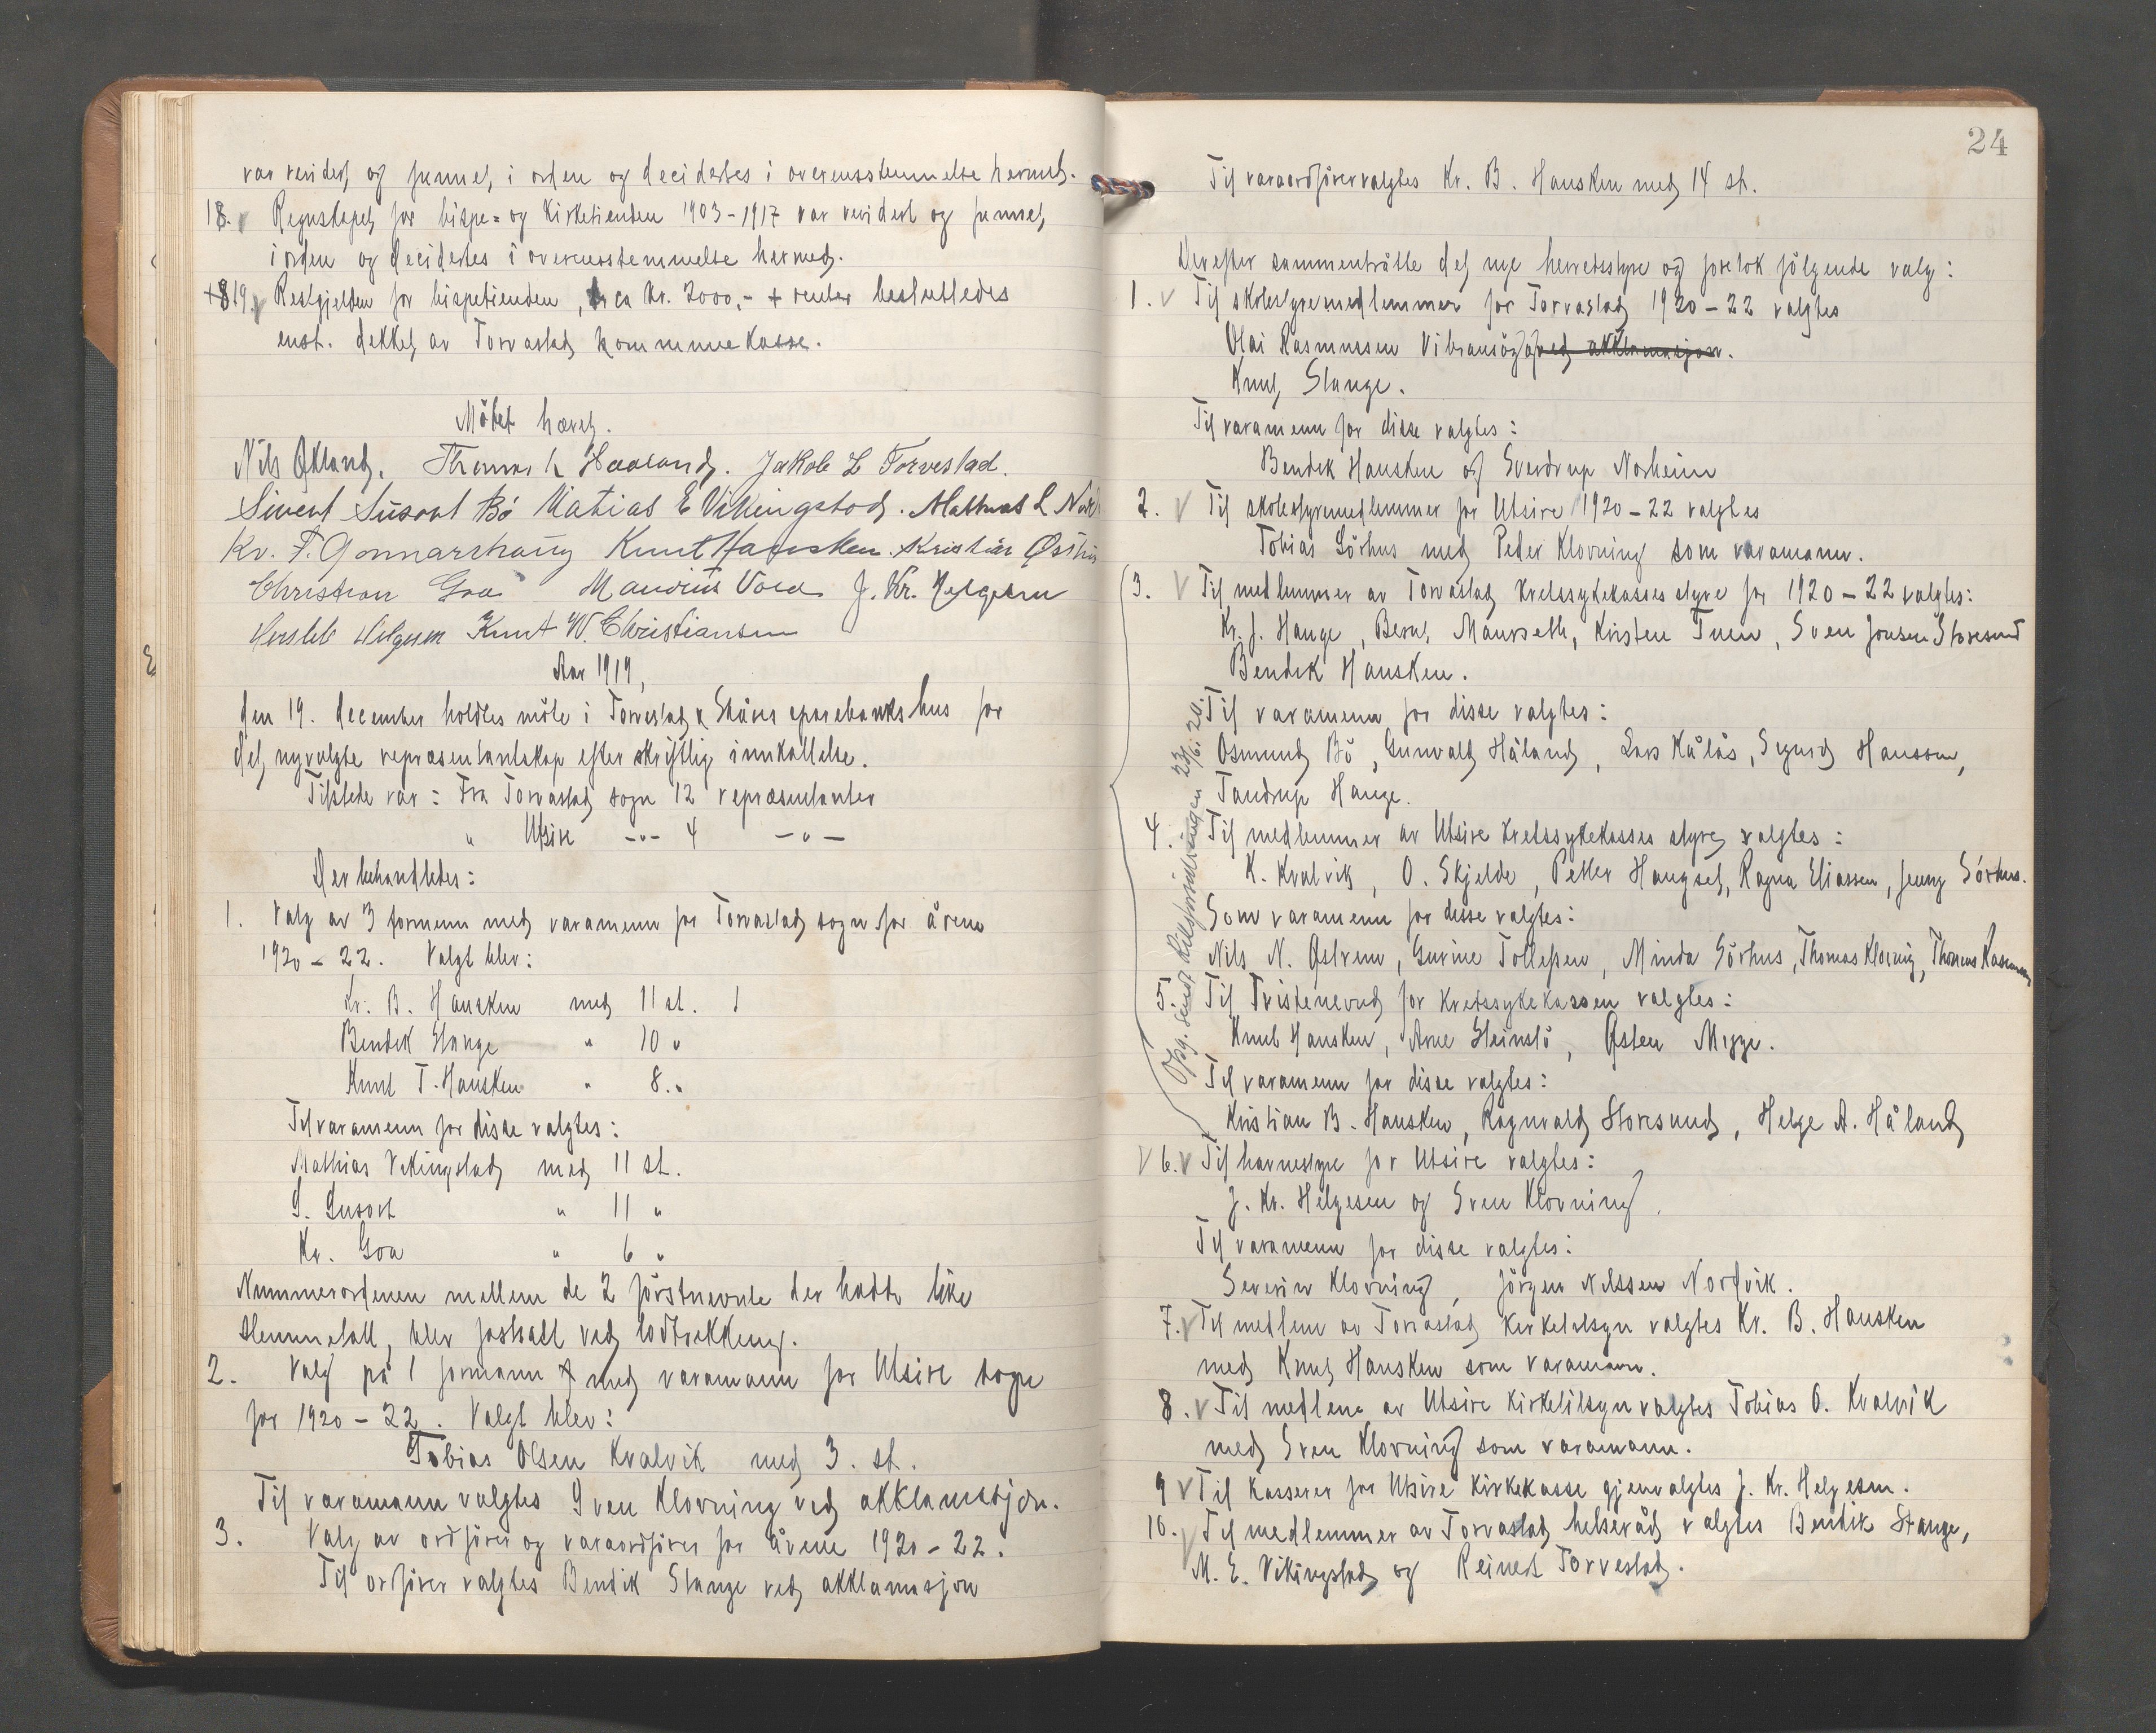 var revidert og funnet i orden og decidertes i overensstemmelse hermed.
18. Regnskapet for bispe= og Kirketienden 1903-1917 var revidert og funnet
i orden og decidertes i overensstemmelse hermed.
+819. Restgjelden for bispetienden, ca kr. 2000,- + renter besluttedes
enst. dekket av Torvastad kommunekasse.
Mötet hævet.
Nils Økland. Thomas Haaland. Jakob L Torvestad.
Sivert Susort Bö Matias E Vikingstad. Mathias L
Kr. F. Gonnarshaug Knut Hausken. Kristian
Christian Goa Maurits Vold J. Kr. Helgesen
Helgesen Knut W. Christiansen
Aar 1919,
den 19. december holdtes möte i Torvestad & Skåres sparebanks hus for
det nyvalgte repræsentantskap efter skriftlig innkallelse.
Tilstede var: Fra Torvastad sogn 12 repræsentanter
" Utsire -"- 4 -"-
Der behandledes:
1. Valg av 3 formenn med varamenn for Torvastad sogn for årene
1920-22. Valgt blev:
Kr. B. Hausken med 11 st. 1
Bendik Stange " 10 "
Knut T. Hausken " 8. "
Til varamenn for disse valgtes:
Mathias Vikingstad med 11 st.
S. Susort " 11 "
Kr. Goa " 6 "
Nummerordenen mellem de 2 förstnevnte der hadde like
stemmetall, blev fastsatt ved lodtrekking.
2. Valg på 1 formann med varamann for Utsire sogn
for 1920-22. Valgt blev:
Tobias Olsen Kvalvik med 3. st.
Til varamann valgtes Sven Klovning ved akklamasjon.
3. Valg av ordförer og varaordförer for årene 1920-22.
Til ordförer valgtes Bendik Stange ved akklamasjon
24
Til varaordförer valgtes Kr. B. Hausken med 14 st.
Derefter sammentrådte det nye herredsstyre og foretok fölgende valg:
1. Til skolestyremedlemmer for Torvastad 1920-22 valgtes
Olai Rasmussen Vibransöy ved akklamasjon.
Knut Stange.
Til varamenn for disse valgtes:
Bendik Hausken og Sverdrup Norheim
2. Til skolestyremedlemmer for Utsire 1920-22 valgtes
Tobias Sörhus med Peder Klovning som varamann.
3. Til medlemmer av Torvastad Kretssykekasses styre for 1920-22 valgtes:
Kr. J. Hauge, Bernt Mausseth, Kirsten Tuen, Sven Jonsen Storesund
Bendik Hausken.
Til varamenn for disse valgtes:
Osmund Bö, Gunvald Håland, Lars Kålås, Sigurd Hansson,
Tandrup Hauge.
4. Til medlemmer av Utsire Kretssykekasses styre valgtes:
K. Kvalvik, O. Skjelde, Petter Haugset, Ragna Eliassen, Jenny Sörhus.
Som varamenn for disse valgtes:
Nils N. Østrem, Gurine Tollefsen, Minda Sörhus, Thomas Klovning, Thomas
5. Til Tvistenevnd for Kretssykekassen valgtes:
Knut Hausken, Arne Steinslö, Østen Mygge.
Til varamenn for disse valgtes:
Kristian B. Hausken, Ragnvald Storesund, Helge A. Håland
6. Til havnestyre for Utsire valgtes:
J. Kr. Helgesen og Sven Klovning.
Til varamenn for disse valgtes:
Severin Klovning, Jörgen Nilssen Nordvik.
7. Til medlem av Torvastad Kirketilsyn valgtes Kr. B. Hausken
med Knut Hausken som varamann.
8. Til medlem av Utsire Kirketilsyn valgtes Tobias O. Kvalvik
med Sven Klovning som varamann.
9 Til Kasserer for Utsire Kirkekasse gjenvalgtes J. Kr. Helgesen.
10. Til medlemmer av Torvastad helseråd valgtes Bendik Stange,
M. E. Vikingstad og Reinert Torvestad.
Opg. sendt Riksforsikringen 23/6.20.